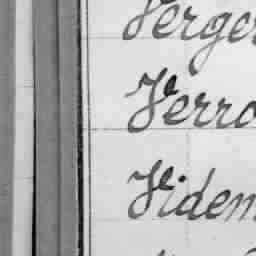 Verger
Verro
Videm